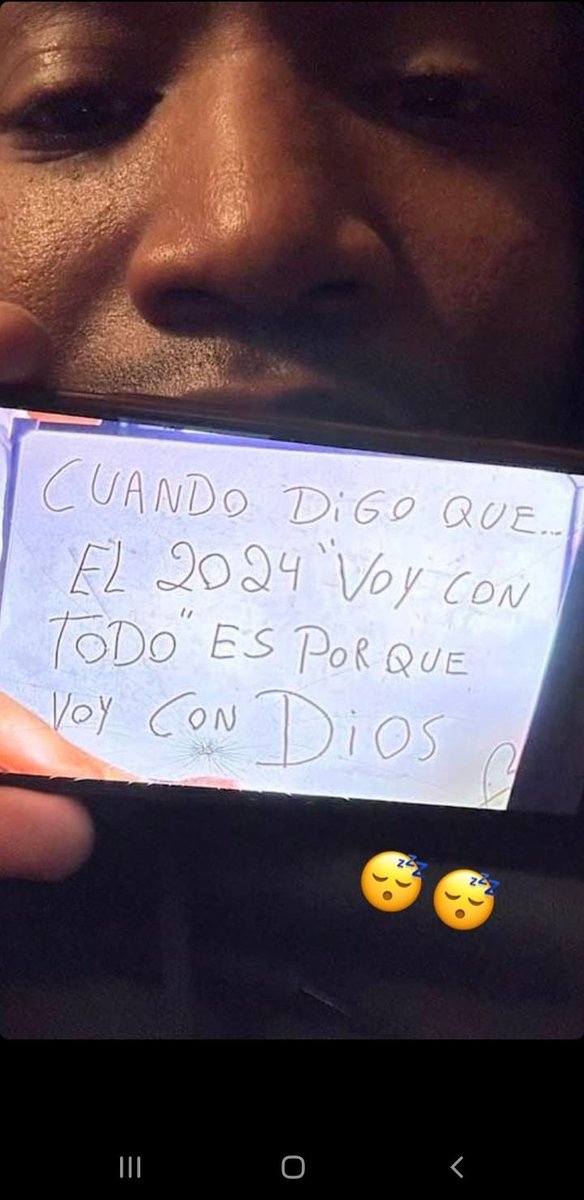 CUANDO DiGO QUE...
EL 2024 "VOY CON
TODO" ES PORQUE
VOY CON DiOS